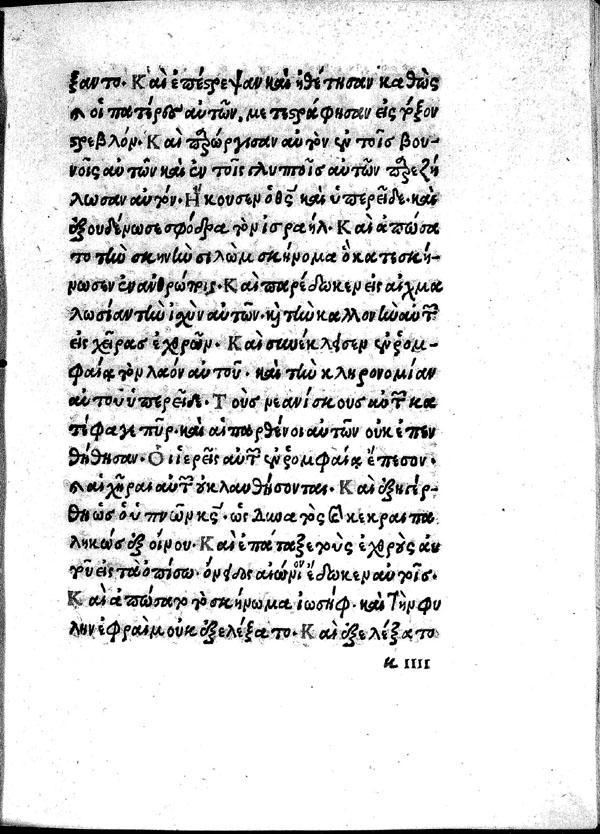 ξαντο· Καὶ ἐπέστρεψαν καὶ ἠθέτησαν καθὼς
καὶ οἱ πατέρες αὐτῶν, μετεστράφησαν εἰς τόξον
στρεβλόν· Καὶ παρώργισαν αὐτὸν ἐν τοῖς βου-
νοῖς αὐτῶν καὶ ἐν τοῖς γλυπτοῖς αὐτῶν παρεζή
λωσαν αὐτόν· Ἤκουσεν ὁ θς καὶ ὑπερεῖδε· καὶ
ἐξουδένωσε σφόδρα τὸν ἰσραήλ· Καὶ ἀπώσα
το τὴν σκηνὴν σιλὼμ σκήνωμα ὃ κατεσκή-
νωσεν ἐν ἀνθρώποις· Καὶ παρέδωκεν εἰς αἰχμα
λωσίαν τὴν ἰσχὺν αὐτῶν· καὶ τὴν καλλονὴν αὐτῶν
εἰς χεῖρας ἐχθρῶν· Καὶ συνέκλεισεν ἐν ῥομ-
φαίᾳ τὸν λαὸν αὐτοῦ· καὶ τὴν κληρονομίαν
αὐτοῦ ὑπερεῖδε· Τοὺς νεανίσκους αὐτῶν κα
τέφαγε πῦρ· καὶ αἱ παρθένοι αὐτῶν οὐκ ἐπεν
θήθησαν· Οἱ ἱερεῖς αὐτῶν ἐν ῥομφαίᾳ ἔπεσον·
καὶ αἱ χῆραι αὐτῶν οὐ κλαυθήσονται· Καὶ ἐξηγέρ-
θη ὡς ὁ ὑπνῶν κς· ὡς δυνατὸς καὶ κεκραιπα
ληκὼς ἐξ οἴνου· Καὶ ἐπάταξε τοὺς ἐχθροὺς αὐ
τοῦ εἰς τὰ ὀπίσω· ὄνειδος αἰώνιον ἔδωκεν αὐτοῖς·
Καὶ ἀπώσατο τὸ σκήνωμα ἰωσήφ· καὶ τὴν φυ
λὴν ἐφραὶμ οὐκ ἐξελέξατο· Καὶ ἐξελέξατο
κ IIII